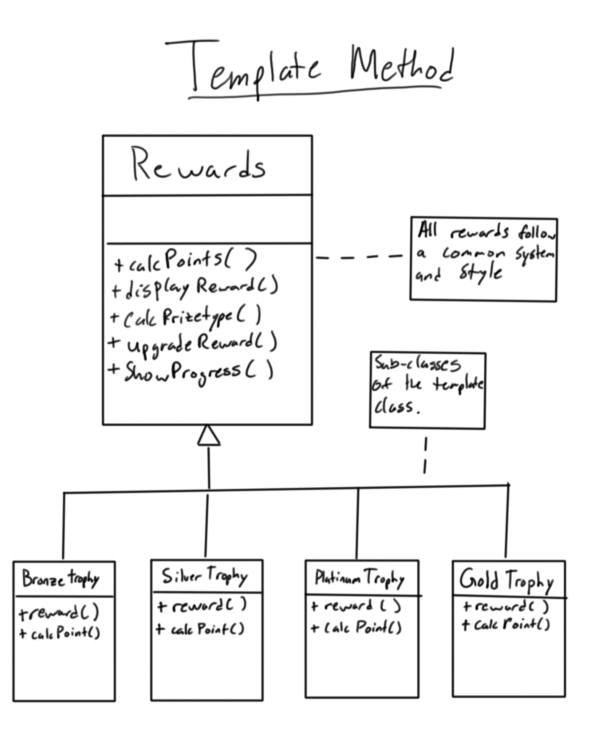 Template Method
Rewards
+ calcPoints( )
+ displayReward( )
+ CalcPrizetype( )
+ UpgradeReward( )
+ ShowProgress( )
All rewards follow
a common System
and Style
Sub-classes
of the template
class.
Bronze trophy
+reward( )
+ calcPoint()
Silver Trophy
+ reward( )
+ calcPoint()
Platinum Trophy
+ reward ( )
+ CalcPoint()
Gold Trophy
+reward( )
+ CalcPoint()